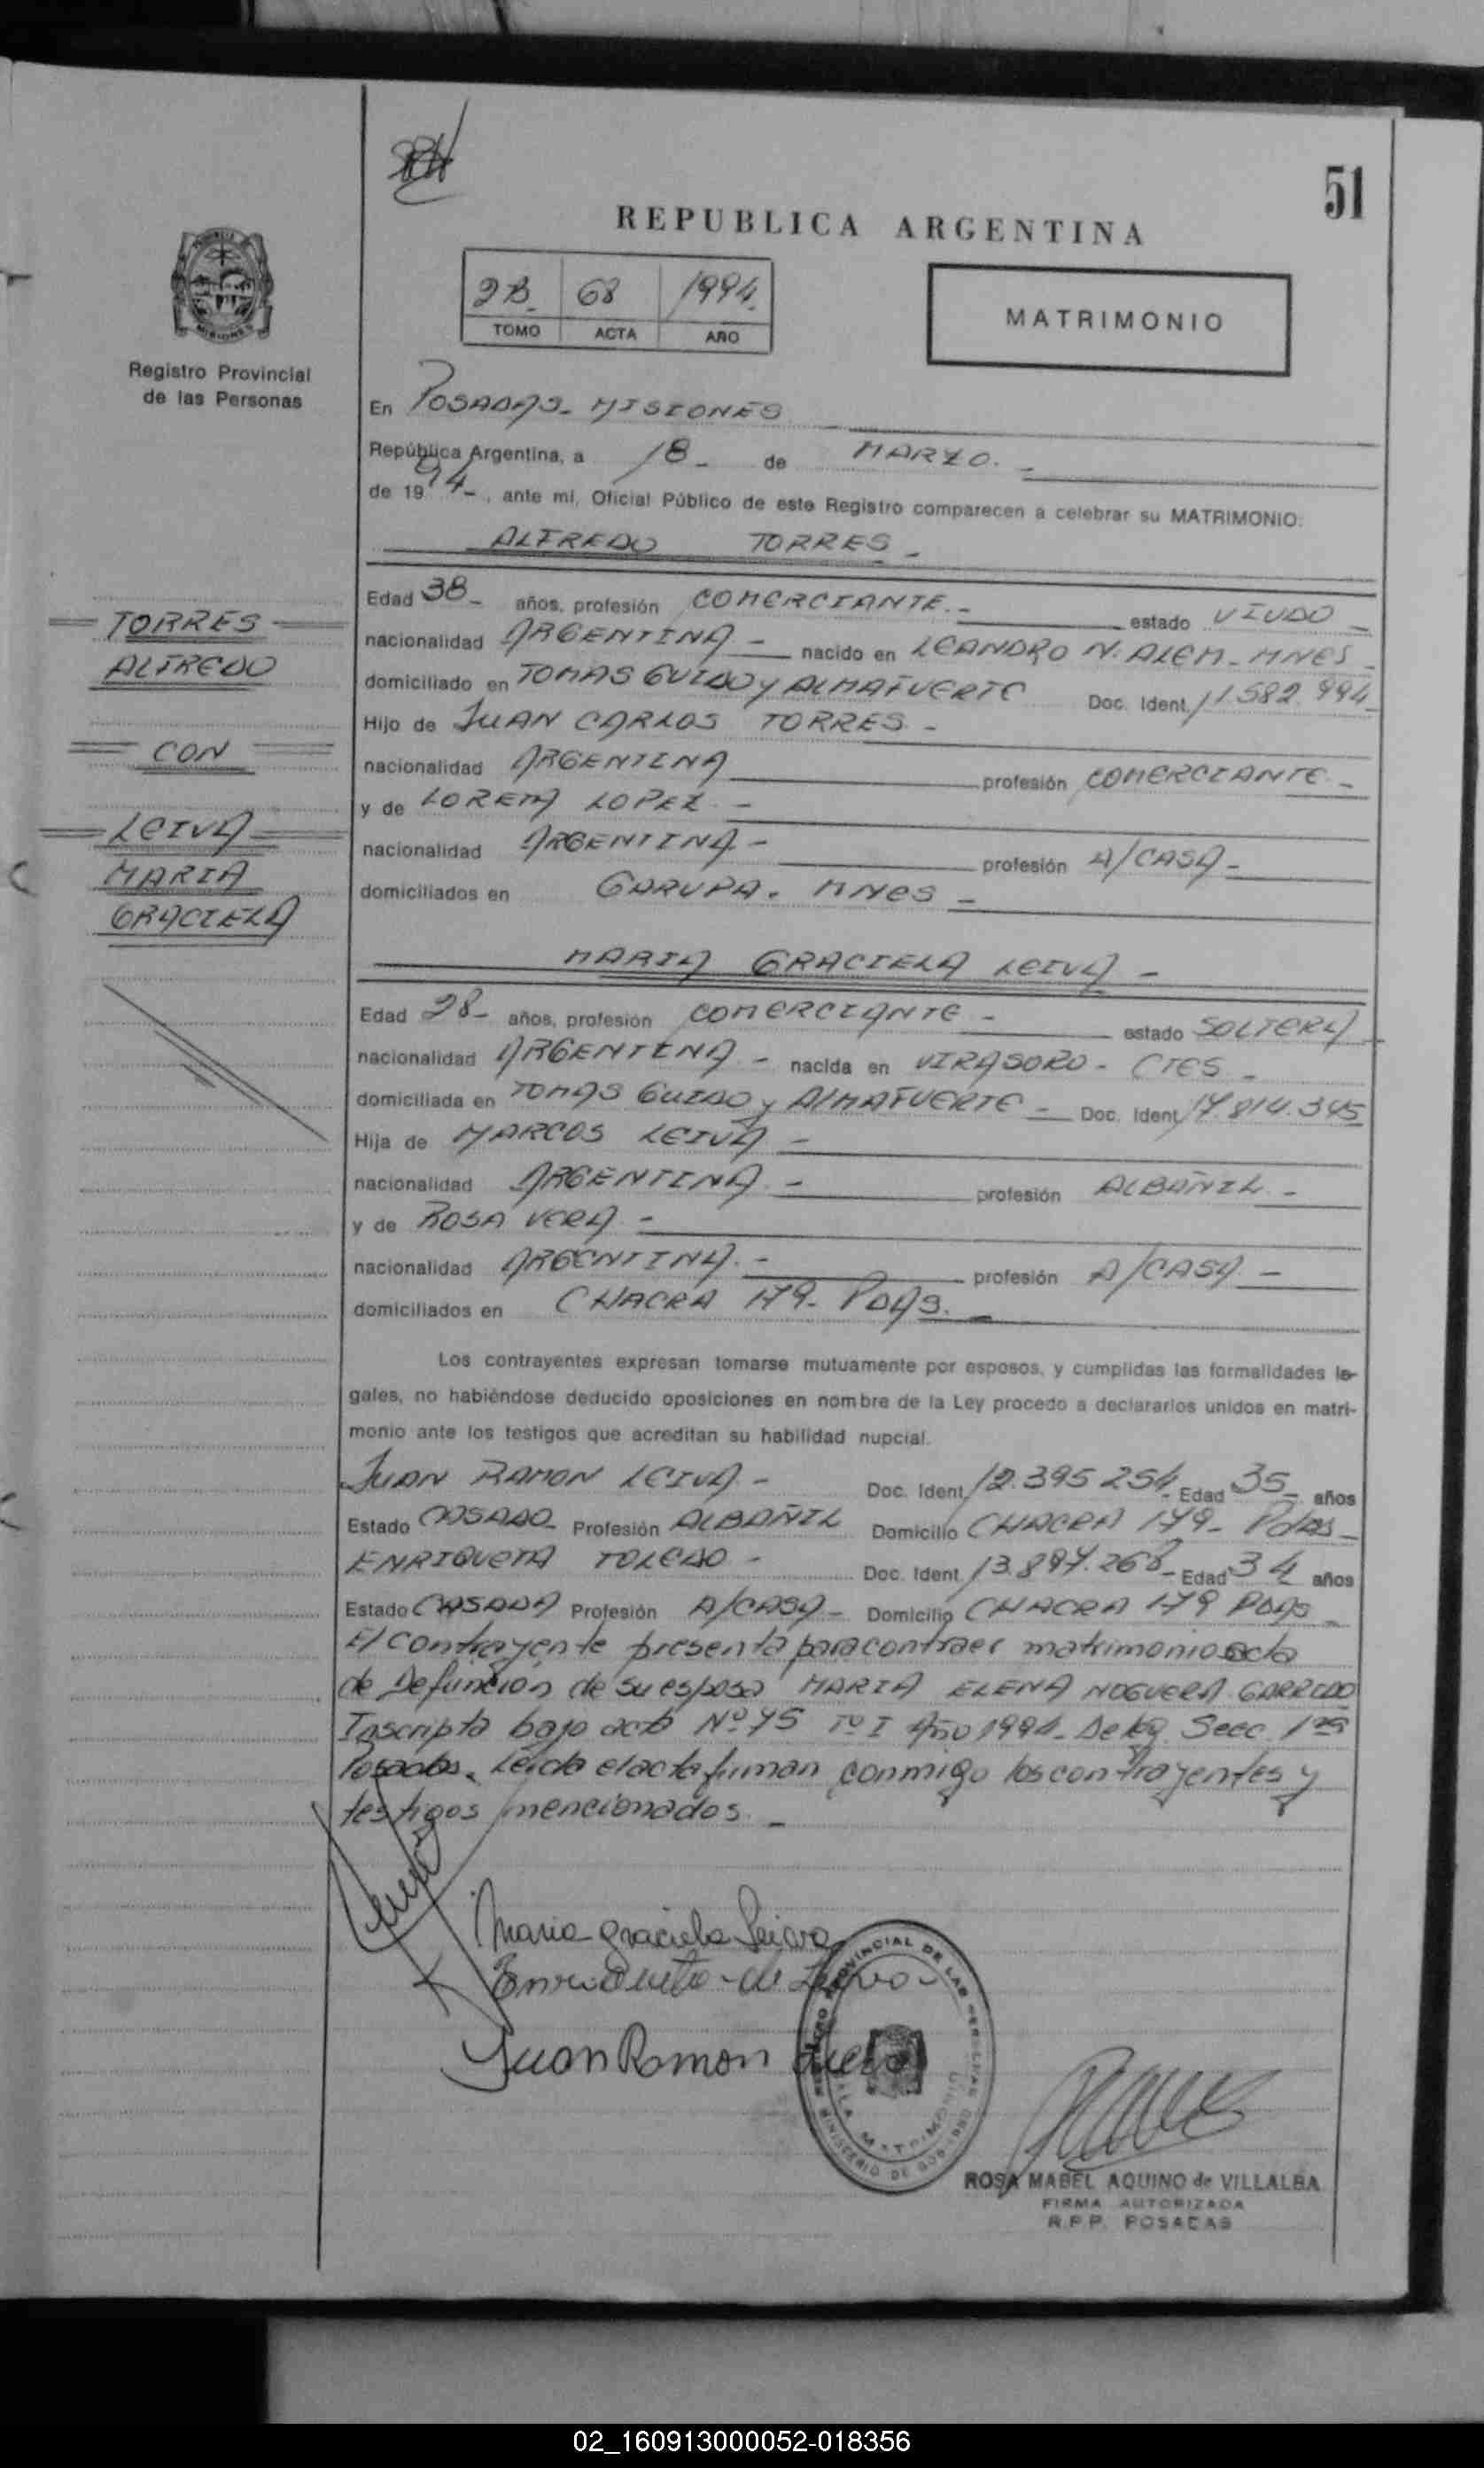 51
REPUBLICA ARGENTINA
2B- 68 1994-
TOMO ACTA AÑO
MATRIMONIO
Registro Provincial
de las Personas
En POSADAS- MISIONES
República Argentina, a 18- de MARZO.-
de 1994-, ante mí, Oficial Público de este Registro comparecen a celebrar su MATRIMONIO:
ALFREDO TORRES-
Edad 38- años, profesión COMERCIANTE.- estado VIUDO-
nacionalidad ARGENTINA- nacido en LEANDRO N. ALEM- MNES-
domiciliado en TOMAS GUIDO y ALMAFUERTE Doc. Ident. 11.582.994-
Hijo de JUAN CARLOS TORRES-
nacionalidad ARGENTINA profesión COMERCIANTE-
y de LORETA LOPEZ-
nacionalidad ARGENTINA- profesión A/CASA-
domiciliados en GARUPA. MNES-
TORRES
ALFREDO
CON
LEIVA
MARIA
GRACIELA
MARIA GRACIELA LEIVA-
Edad 28- años, profesión COMERCIANTE- estado SOLTERA
nacionalidad ARGENTINA- nacida en VIRASORO- CTES-
domiciliada en TOMAS GUIDO y ALMAFUERTE- Doc. Ident. 17.814.345
Hija de MARCOS LEIVA-
nacionalidad ARGENTINA- profesión ALBAÑIL-
y de ROSA VERA-
nacionalidad ARGENTINA.- profesión A/CASA-
domiciliados en CHACRA 179- PDAS.-
Los contrayentes expresan tomarse mutuamente por esposos, y cumplidas las formalidades le-
gales, no habiéndose deducido oposiciones en nombre de la Ley procedo a declararlos unidos en matri-
monio ante los testigos que acreditan su habilidad nupcial.
JUAN RAMON LEIVA- Doc. Ident. 12.395.254- Edad 35- años
Estado CASADO- Profesión ALBAÑIL Domicilio CHACRA 179- Pdas-
ENRIQUETA TOLEDO- Doc. Ident. 13.897.268- Edad 34 años
Estado CASADA Profesión A/CASA- Domicilio CHACRA 179 PDAS-
El contrayente presenta para contraer matrimonio acta
de Defunción de su esposa MARIA ELENA NOGUERA GARRIDO
Inscripta bajo acta Nº 75 Tº I Año 1994- Deleg. Secc. 1ra
Posadas. Leida el acta firman conmigo los contrayentes y
testigos mencionados.-
Maria Graciela Leiva
Enriqueta de Leiva
Juan Ramon Leiva
REGISTRO PROVINCIAL DE LAS PERSONAS
MINISTERIO DE GOBIERNO
SALA MATRIMONIO
ROSA MABEL AQUINO de VILLALBA
FIRMA AUTORIZADA
R.P.P. POSADAS
02_160913000052-018356